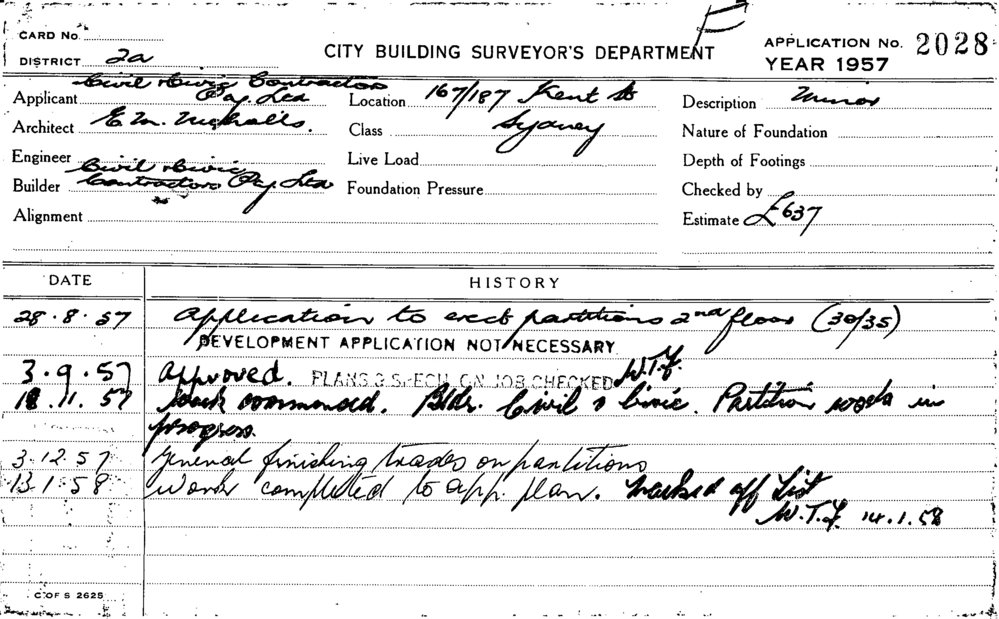 CARD No.
DISTRICT 2a
CITY BUILDING SURVEYOR'S DEPARTMENT
APPLICATION No. 2028
YEAR 1957
Applicant Civil & Civic Contractors Pty. Ltd
Location 167/187 Kent St
Sydney
Description Minor
Architect E. M. Nicholls.
Class
Nature of Foundation
Engineer
Live Load
Depth of Footings
Builder Civil & Civic Contractors Pty. Ltd
Foundation Pressure
Checked by
Alignment
Estimate £637
DATE HISTORY
28.8.57 Application to erect partitions 2nd floor (30/35)
DEVELOPMENT APPLICATION NOT NECESSARY
3.9.57 Approved. PLANS & SPECN. ON JOB CHECKED W.T.Y.
18.11.57 Work commenced. Bldr. Civil & Civic. Partition work in
progress.
3.12.57 General finishing trades on partitions
13.1.58 Work completed to app. plan. Marked off List
W.T.Y. 14.1.58
C OF S 2625